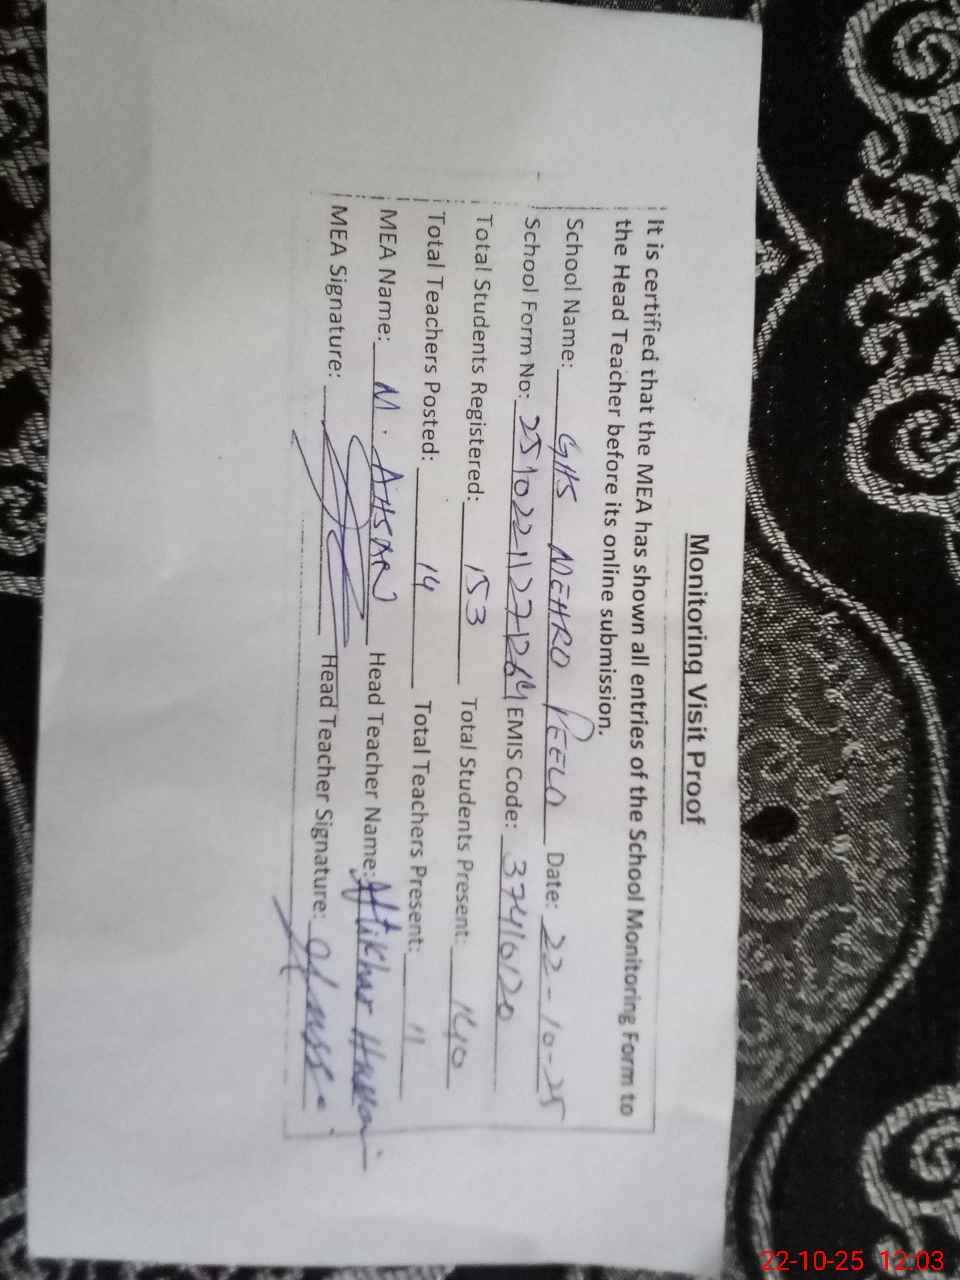 Monitoring Visit Proof
It is certified that the MEA has shown all entries of the School Monitoring Form to
the Head Teacher before its online submission.
School Name: GHS MEHRO PEELO Date: 22-10-25
School Form No: EMIS Code: 37410120
Total Students Registered: 153 Total Students Present: 140
Total Teachers Posted: 14 Total Teachers Present: 11
MEA Name: M. AHSAN Head Teacher Name: Iftikhar Hussain
MEA Signature: Head Teacher Signature:
22-10-25 12:03